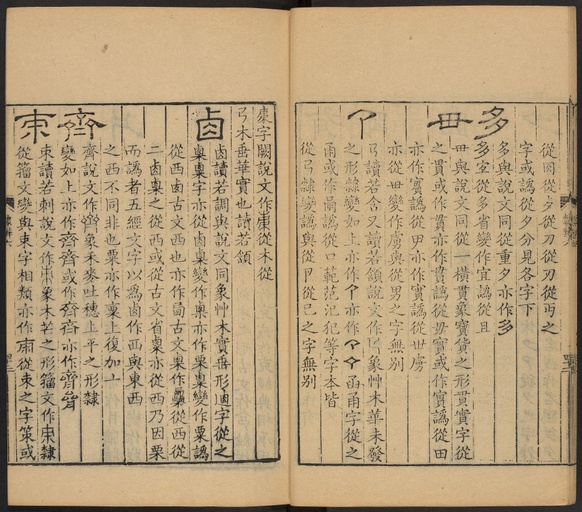 從囪從歺從刀從刃從丏之
字或譌從夕分見各字下
多
多與說文同從重夕亦作多
多宜從多省變作宜譌從且
毌
毌與說文同從一橫貫象寶貨之形貫實字從
之貫或作貫亦作貫譌從毋實或作實譌從田
亦作實譌從甲亦作實譌從世虜
亦從世變作虜與從男之字無別
𢎘
𢎘讀若含又讀若頷說文作𢎘象艸木華未發
之形隸變如上亦作𢎘函甬字從之
甬或作甬譌從口範范氾犯等字本皆
從𢎘隸變譌與從卩從巳之字無別
字闕說文作從木從
𢎘木垂華實也讀若頷
卣
卣讀若調與說文同象艸木實垂形逌字從之
㮚字亦從卣㮚變作㮚亦作栗㮚變作粟譌
從西卣古文西也亦作卣古文㮚作從西從
二卣㮚之從西或從古文省㮚亦從西乃因栗
而譌者五經文字以爲卣作西與東西
之西不同非也栗亦作㮚上復加亠
齊
齊說文作齊象禾麥吐穗上平之形隸
變如上亦作齊齊或作齊齊亦作齊
朿
朿讀若刺說文作朿象木芒之形籀文作朿隸
從籀文變與束字相類亦作朿從朿之字策或